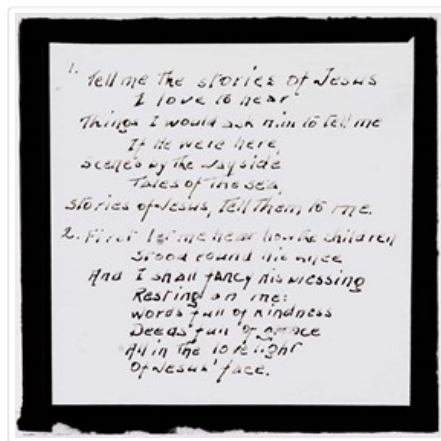 1.
Tell me the stories of Jesus
I love to hear
Things I would ask him to tell me
If He were here,
Scenes by the wayside
Tales of the sea,
Stories of Jesus, Tell them to me.
2. First let me hear how the children
Stood round his knee
And I shall fancy his blessing
Resting on me:
Words full of kindness
Deeds full of grace
All in the love light
Of Jesus' face.